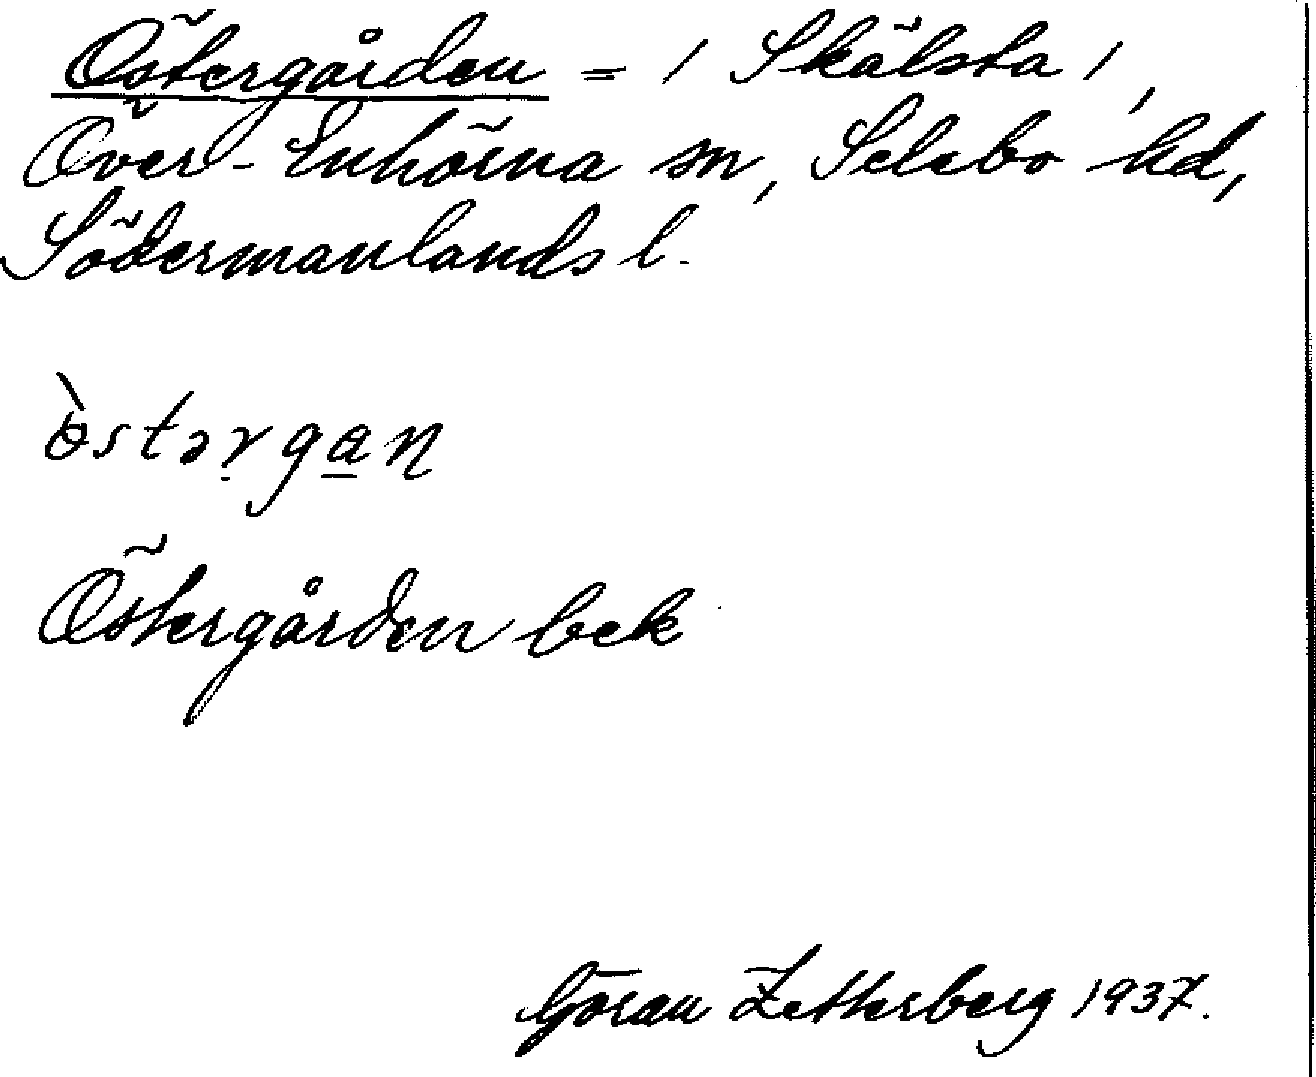 Östergården = / Skälsta /,
Över-Enhörna sn, Selebo hd,
Södermanlands l.
ὸstərgan
Östergården bek
Göran Zetterberg 1937.